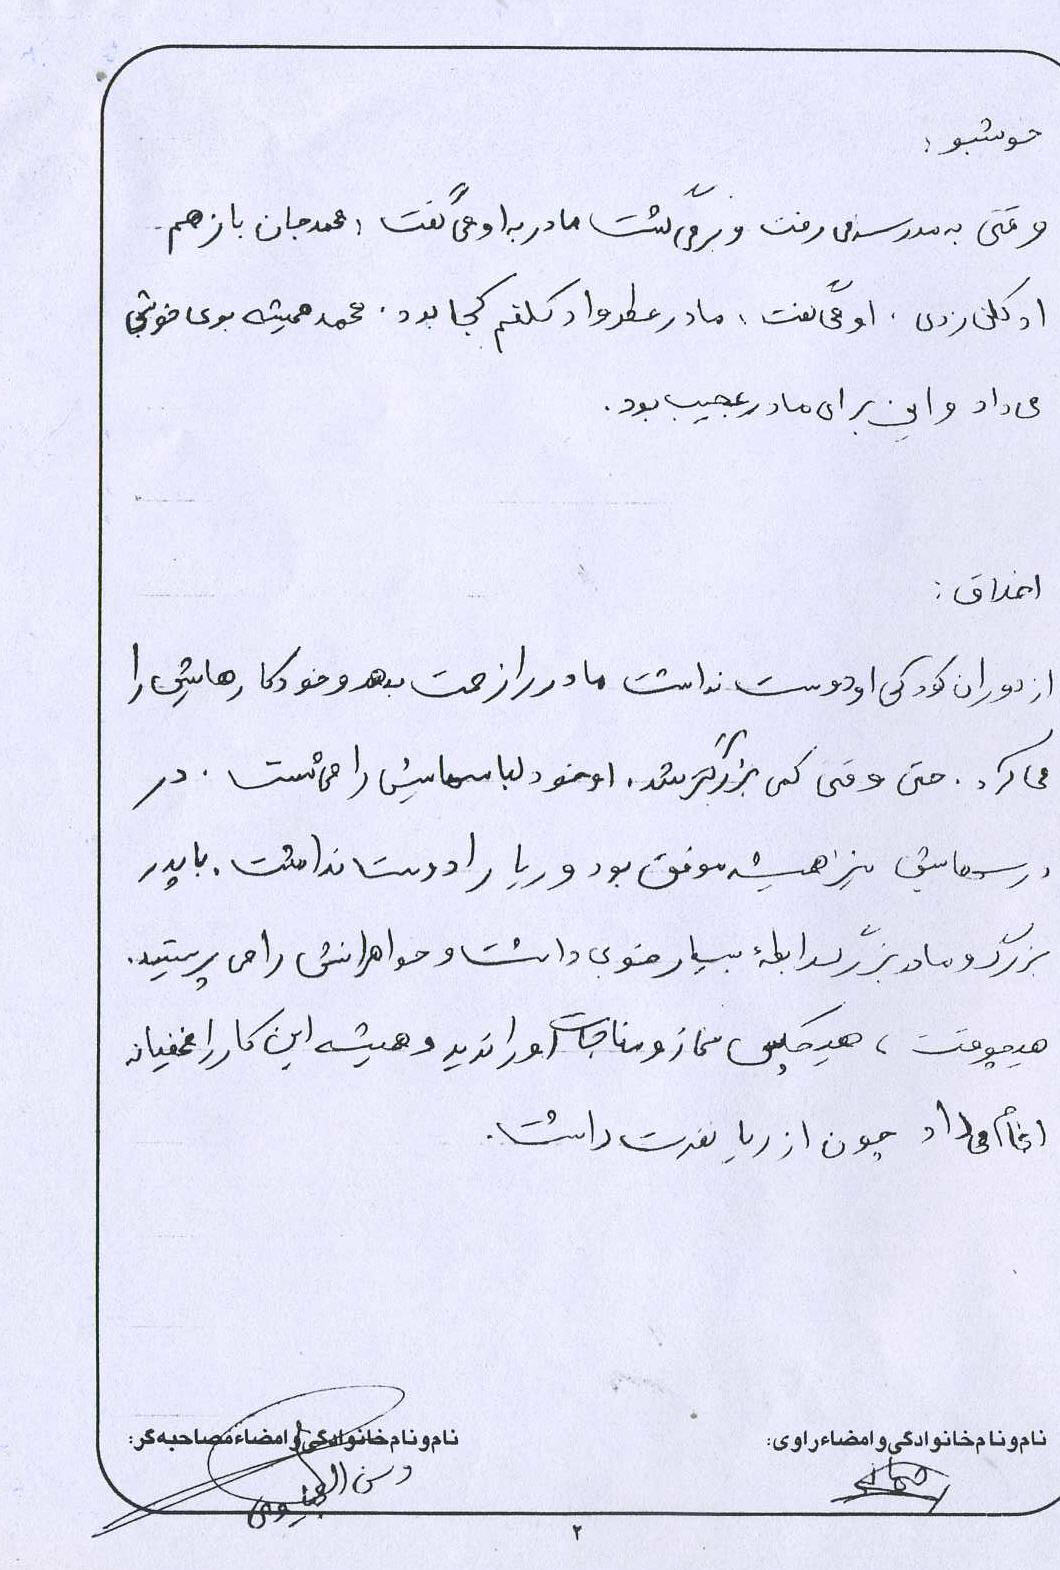 خوشبو :
وقتی به مدرسه می رفت و برمی گشت مادر به او می گفت : محمد جان باز هم
ادکلن زدی . او می گفت : مادر عطر و ادکلنم کجا بود . محمد همیشه بوی خوشی
می داد و این برای مادر عجیب بود .
اخلاق :
از دوران کودکی او دوست نداشت مادر را زحمت بدهد و خود کارهایش را
می کرد . حتی وقتی کمی بزرگتر شد . او خود لباسهایش را می شست . در
درسهایش نیز همیشه موفق بود و ریا را دوست نداشت . با پدر
بزرگ و مادر بزرگ رابطهٔ بسیار خوبی داشت و خواهرانش را می پرستید .
هیچوقت ، هیچکس نماز و مناجات او را ندید و همیشه این کار را مخفیانه
انجام می داد چون از ریا نفرت داشت .
نام و نام خانوادگی و امضاء راوی:
نام و نام خانوادگی و امضاء مصاحبه گر:
۲